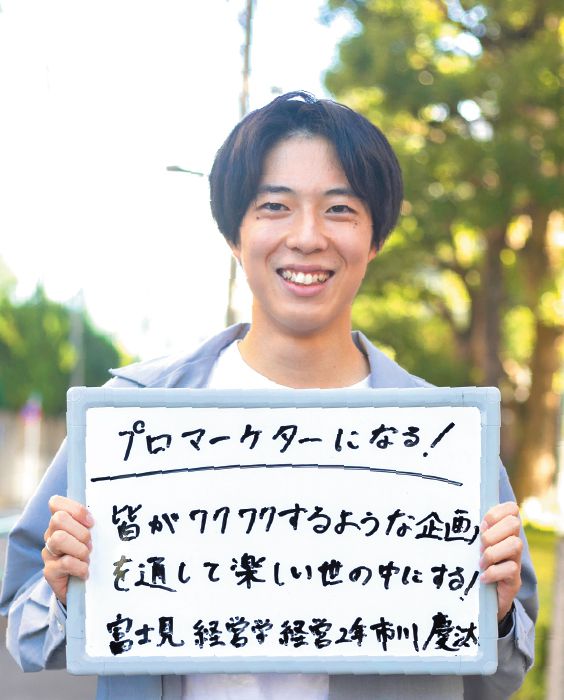 プロマーケターになる!
皆がワクワクするような企画
を通して楽しい世の中にする!
富士見 経営学 経営2年 市川 慶汰